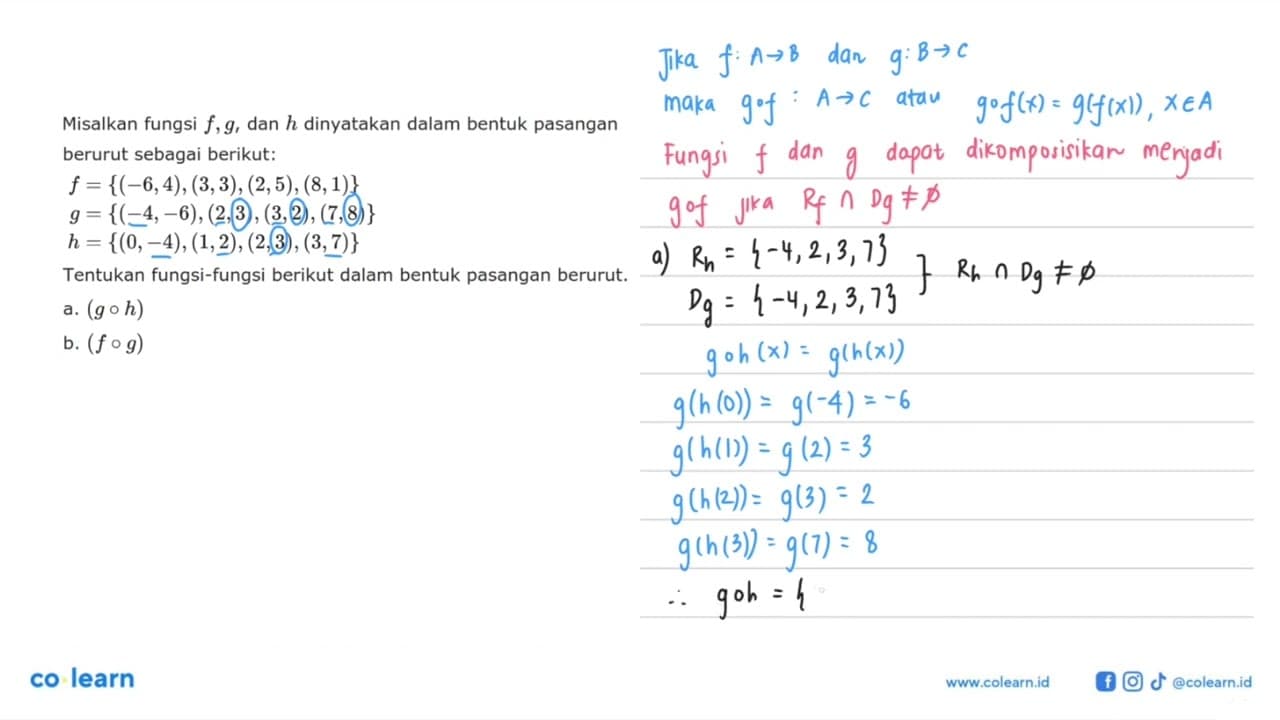 Misalkan fungsi f, g, dan h dinyatakan dalam bentuk pasangan
berurut sebagai berikut:
f = {(−6, 4), (3, 3), (2, 5), (8, 1)}
g = {(−4, −6), (2, 3), (3, 2), (7, 8)}
h = {(0, −4), (1, 2), (2, 3), (3, 7)}
Tentukan fungsi-fungsi berikut dalam bentuk pasangan berurut.
a. (g ∘ h)
b. (f ∘ g)
Jika f: A → B dan g: B → C
maka g∘f : A → C atau g∘f(x) = g(f(x)), x ∈ A
Fungsi f dan g dapat dikomposisikan menjadi
g∘f jika Rf ∩ Dg ≠ ∅
a) Rh = {-4, 2, 3, 7}
Dg = {-4, 2, 3, 7} } Rh ∩ Dg ≠ ∅
g∘h (x) = g(h(x))
g(h(0)) = g(-4) = -6
g(h(1)) = g(2) = 3
g(h(2)) = g(3) = 2
g(h(3)) = g(7) = 8
∴ g∘h = {
co learn
www.colearn.id
@colearn.id